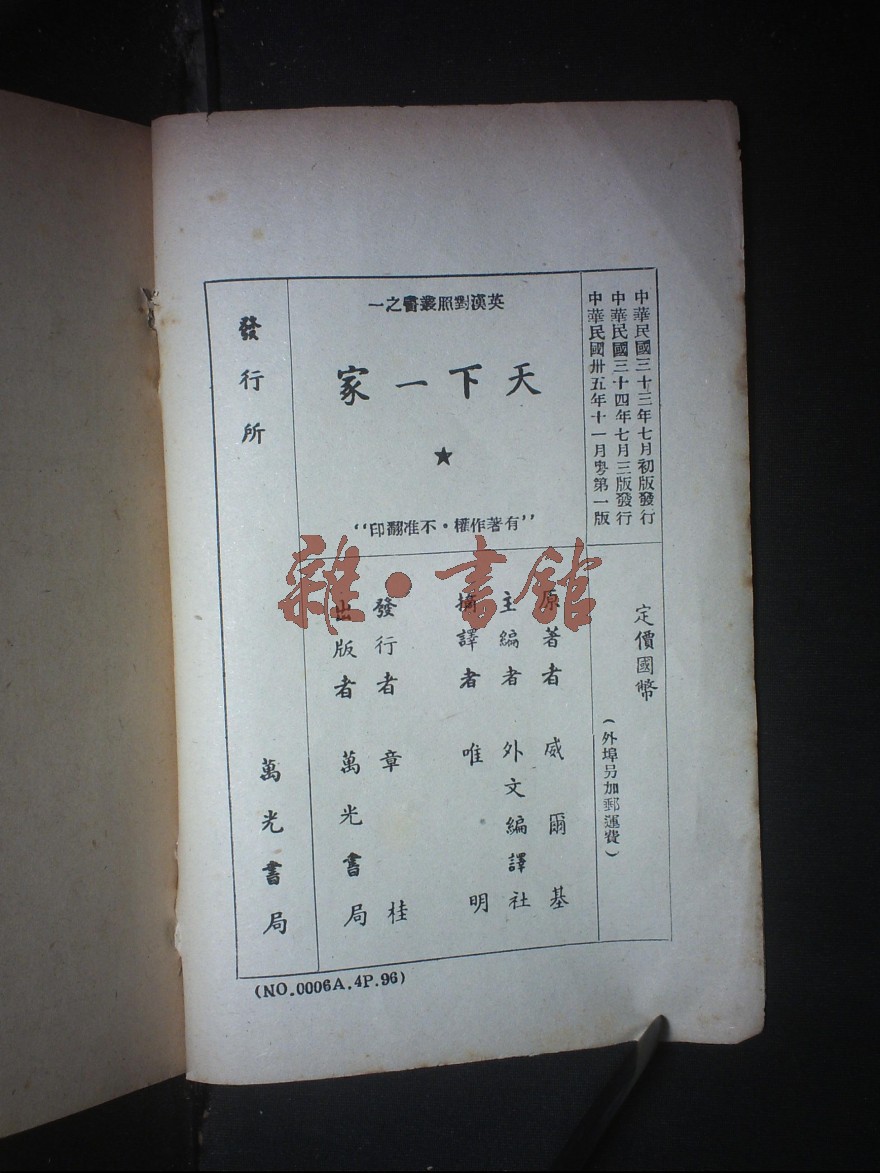 中華民國三十三年七月初版發行
中華民國三十四年七月三版發行
中華民國卅五年十一月粵第一版
定價國幣
(外埠另加郵運費)
英漢對照叢書之一
天下一家
★
"有著作權·不准翻印"
原著者 威爾基
主編者 外文編譯社
摘譯者 唯明
發行者 章桂
出版者 萬光書局
發行所 萬光書局
(NO.0006A.4P.96)
雜·書館